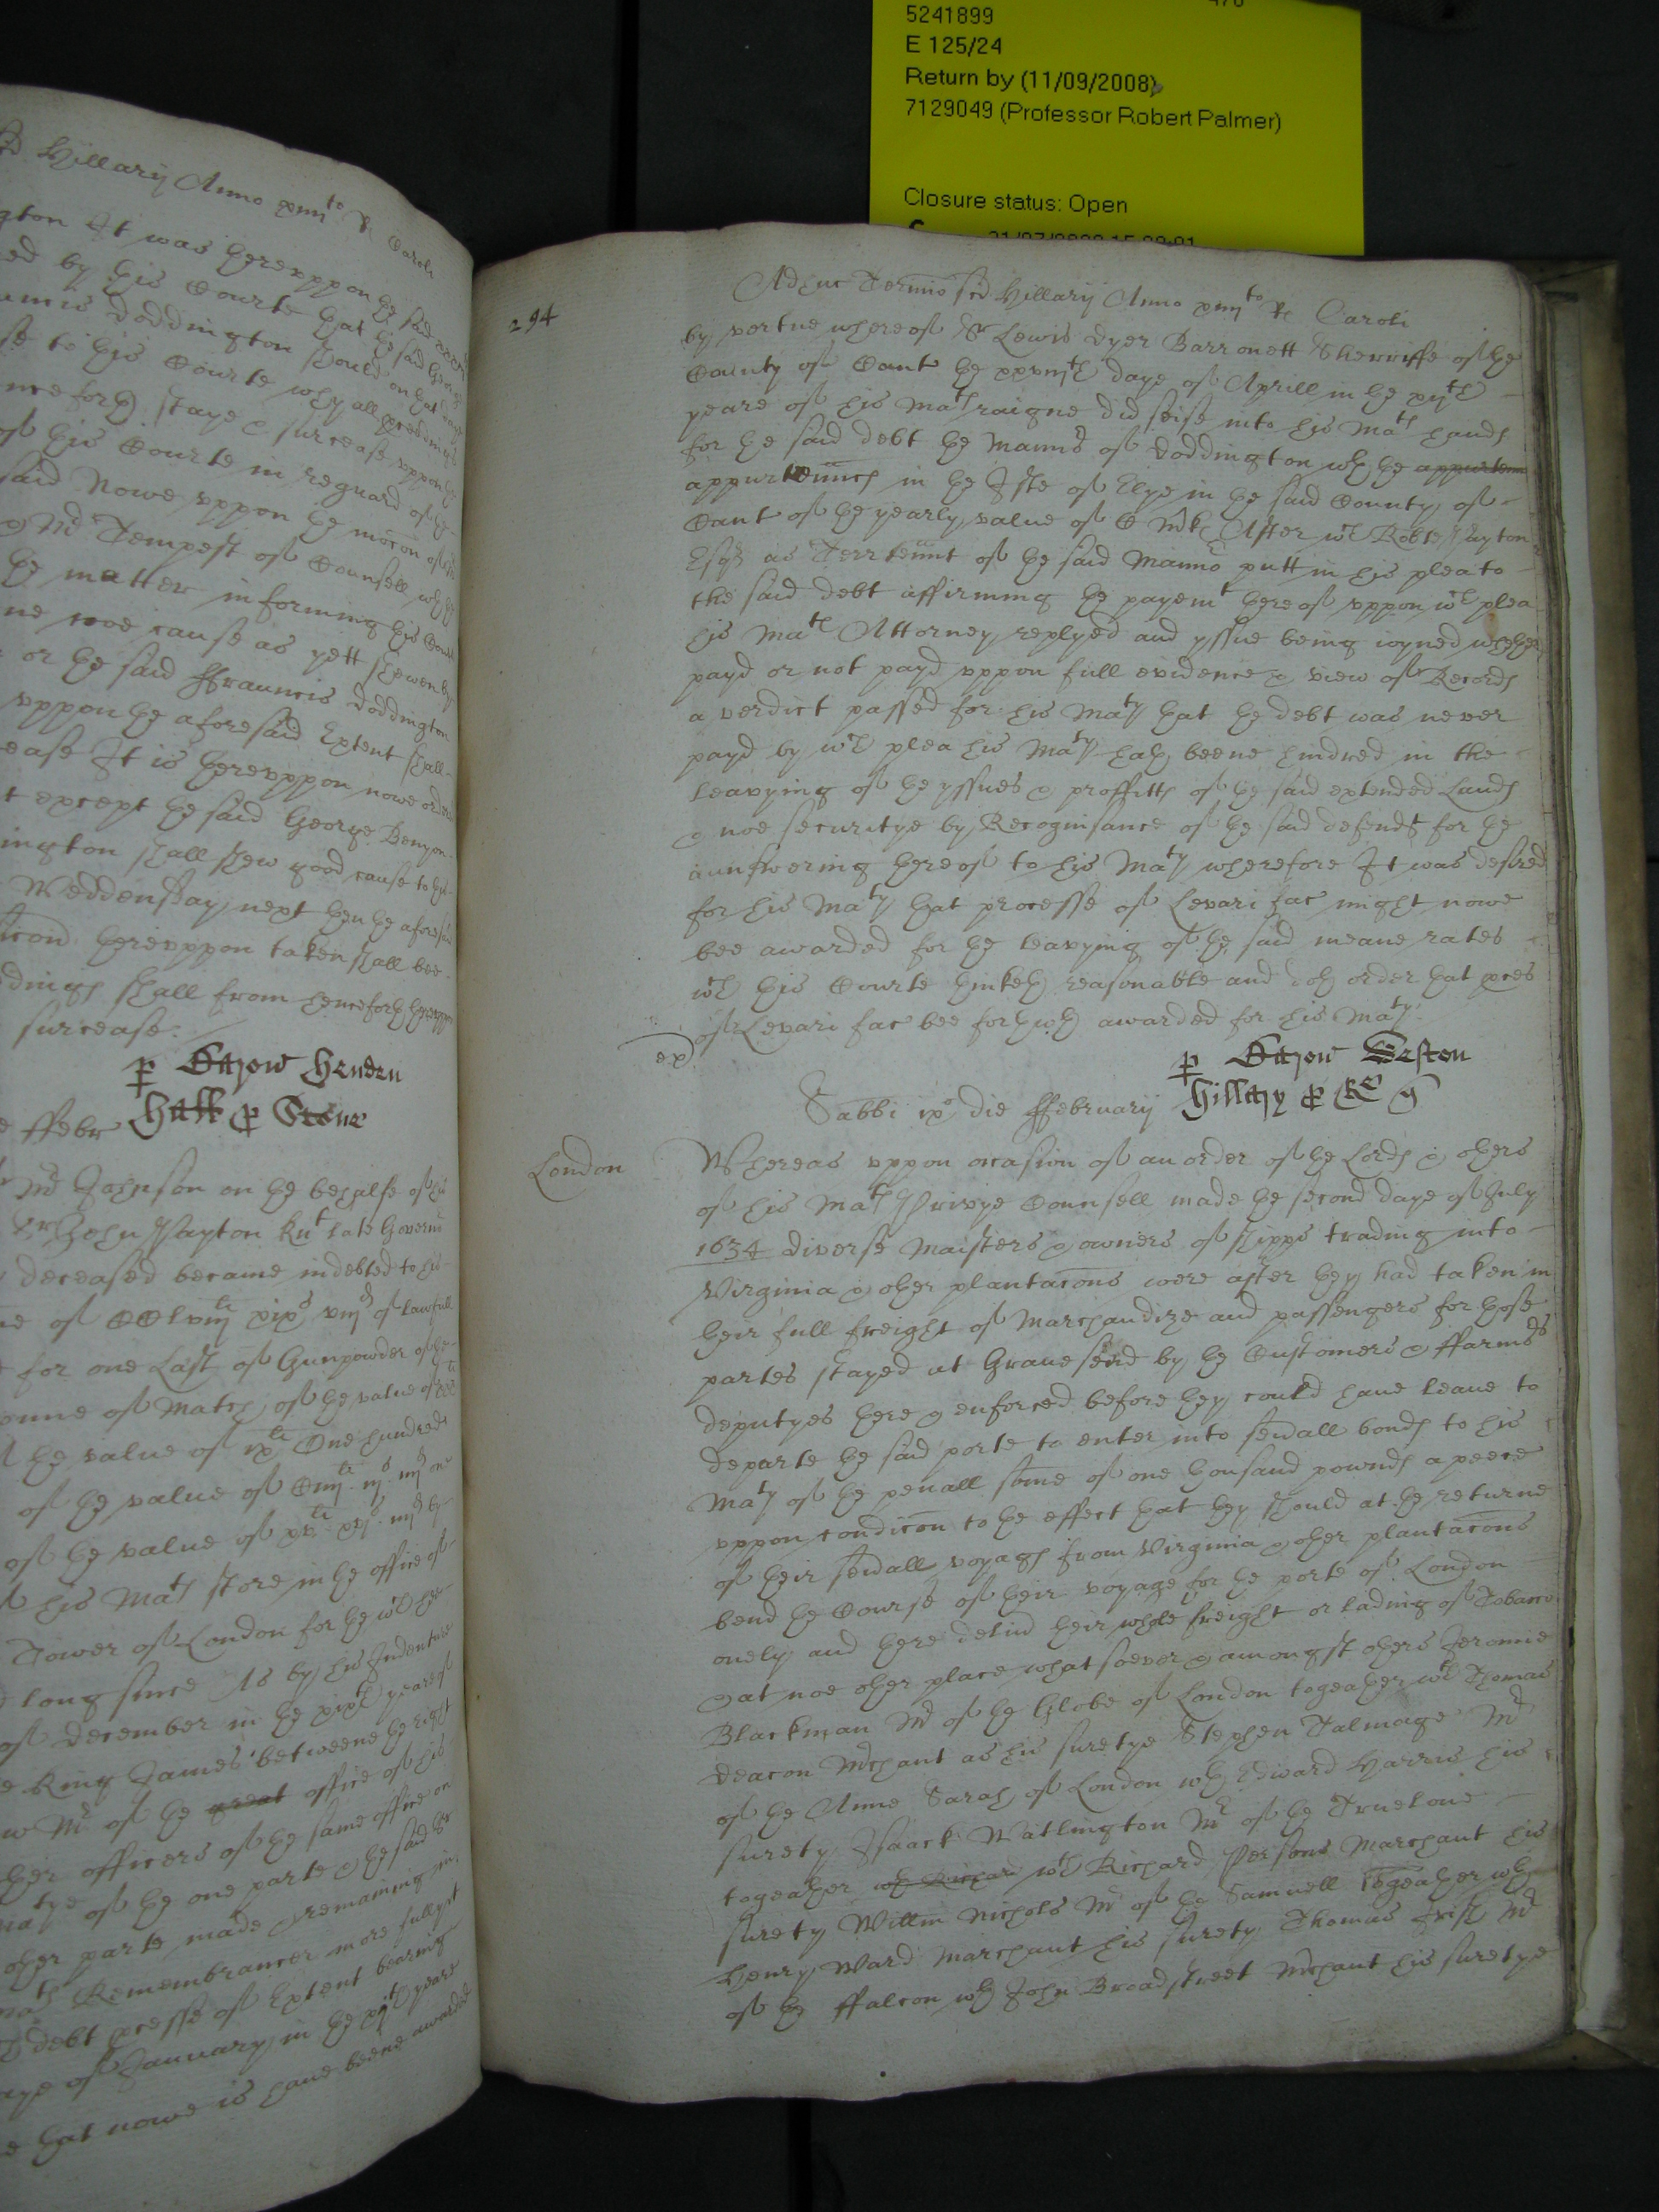 5241899
E 125/24
Return by (11/09/2008)
7129049 (Professor Robert Palmer)
Closure status: Open
Hillarij Anno xiiijto R Caroli
gton It was herevppon the said
ed by this Courte that the said George
Doddington should on that
se to this Courte why all proceedings
nceforth staye & surcease vppon the
of this Courte in reguard of the
said Nowe vppon the mocion of
Mr Tempest of Counsell wth the
the matter informing this Court
ne noe cause as yett shewen by
or the said ffrauncis Doddington
vppon the aforesaid Extent shall
ease It is herevppon nowe ordered
t except the said George Benyon
ington shall shew good cause to the
Weddensday next then the aforesaid
herevppon taken shall bee
dings shall from henceforth herevppon
surcease.
p Barow Henden
ffebr
Mr Johnson on the behalfe of his
Sr John Payton Knt late Governor
deceased became indebted to his
ne of CClviijli xixs viijd of lawfull
for one Last of Gunpowder of the
onne of Match of the value of
the value of ixli One hundred
of the value of
of the value of
his Mats store in the office of
Tower of London for the wch
long since As by his Indenture
of December in the xixth yeare of
King James betweene the right
Mr of the great office of his
ther officers of the same office on
of the one parte & the said Sr
other parte made remaining in
Remembrancer more fully
debt processe of Extent bearing
aye of January in the xijth yeare
that nowe is haue beene awarded
294
Adhuc Termino scd Hillarij Anno xiiijto R Caroli
by vertue whereof Sr Lewis Dyer Barronett Sherriffe of the
County of Cant the xxviijth daye of Aprill in the xijth
yeare of his Mats raigne did seise into his Mats hands
for the said debt the Mannor of Doddington wth the appurtenn
appurtennces in the Isle of Elye in the said County of
Cant of the yearly value of C Mrks After wch Robte Payton
Esqr as Terrtennt of the said Mannor putt in his plea to
the said debt affirming the payemt thereof vppon wch plea
his Mats Attorney replyed and yssue being ioyned whether
payd or not payd vppon full evidence & view of Records
a verdict passed for his Maty that the debt was never
payd by wch plea his Maty hath beene hindred in the
leavying of the yssues & proffitts of the said extended Lands
& noe securitye by Recognisance of the said defendt for the
aunswering thereof to his Maty wherefore It was desired
for his Maty that processe of Levari fac might nowe
bee awarded for the leavying of the said meane rates
wch this Courte thinketh reasonable and doth order that pces
of Levari fac bee forthwth awarded for his Maty.
ex
p Barow Weston
Sabbi ixo die ffebruarij
London
Whereas vppon occasion of an order of the Lords & others
of his Mats Privye Counsell made the second daye of July
1634 diverse Maisters & owners of shipps trading into
Virginia & other plantacons were after they had taken in
their full freight of Marchandize and passengers for those
partes stayed at Gravesend by the Customers & ffarmors
deputyes there & enforced before they could haue leave to
departe the said porte to enter into seuall bonds to his
Maty of the penall some of one thousand pownds a peece
vppon condicon to the effect that they should at the returne
of their seuall voyags from Virginia & other plantacons
bend the Course of their voyage for the porte of London
onely and there deliur their whole freight or lading of Tobacco
& at noe other place whatsoever & amongst others Jeromie
Blackman Mr of the Globe of London togeather wth Thomas
Deacon Mrchant as his suretye Stephen Talmage Mr
of the Anne Sarah of London wth Edward Harris his
surety Isaack Watlington Mr of the Truelove
togeather wth Richard wth Richard Persons Marchant his
surety Willm Nichols Mr of the Samuell togeather wth
Henry Ward Marchant his surety Thomas Irish Mr
of the ffalcon wth John Broadstreet Mrchant his suretye